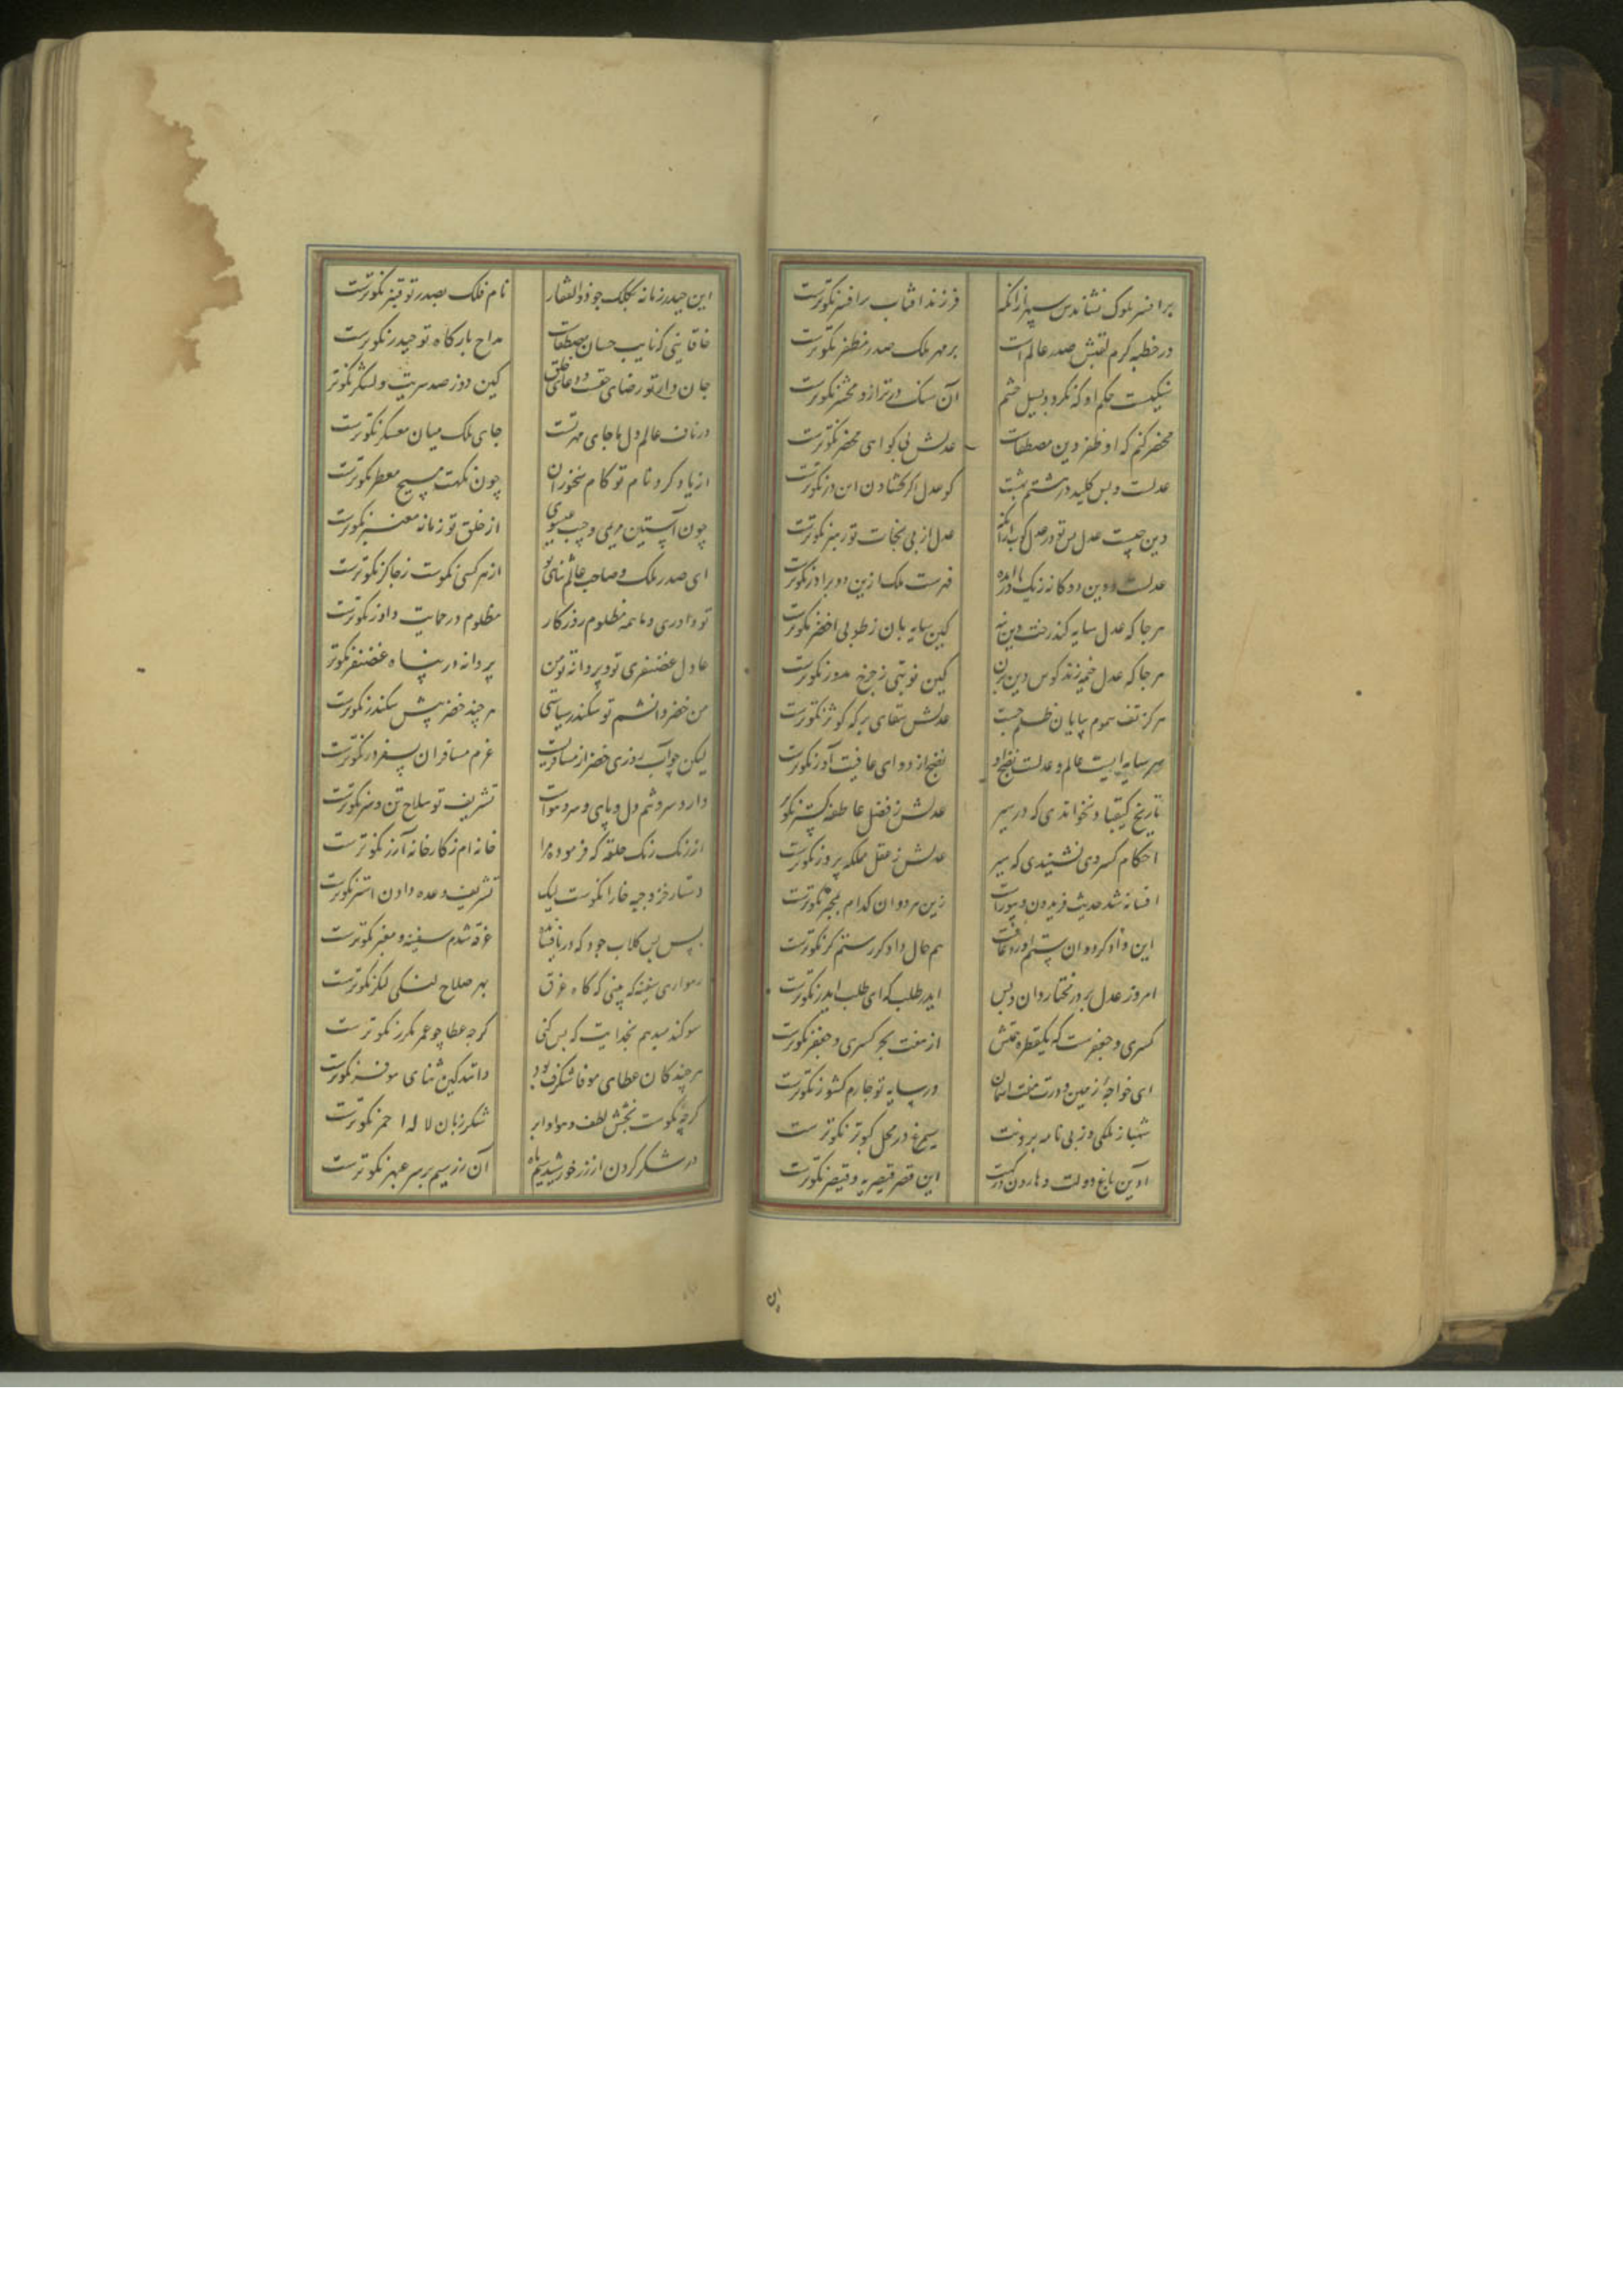 بر افسر ملوک نشاندش سپهر ازانکه فرزند افتاب بر افسر نکوترست
در خطبه کرم لقبش صدر عالم است بر مهر ملک صدر مظفر نکوترست
حکم او که نکرد و بسیل خشم آن سنک در ترازو محشر نکوترست
محضر کنم که او ظفر دین مصطفاست عدلش بی کوای محضر نکوترست
عدلست و بس کلید در هشتم بهشت کو عدل اکر کشادن این در نکوترست
دین چیست عدل پس تو در عدل کوب ازانکه عدل از پی نجات تو رهبر نکوترست
عدلست و دین دو کانه ز یک مادر آمده فهرست ملک ازین دو برادر نکوترست
هر جا که عدل سایه کند رخت دین بنه کین سایه بان ز طوبی اخضر نکوترست
هر جا که عدل خیمه زند کوس دین بزن کین نوبتی ز چرخ مدور نکوترست
هر کز تف سموم بیابان ظلم جست عدلش سقای برکه کوثر نکوترست
عالم و عدلست نضج او نضج از دوای عافیت آور نکوترست
تاریخ کیقباد نخواندی که در سیر عدلش ز فضل عاطفه کستر نکوتر
احکام کسروی نشنیدی که سیر عدلش ز عقل مملکه پرور نکوترست
افسانه شد حدیث فریدون و بیوراسب زین هر دوان کدام بمخبر نکوترست
این داد کرد و ان ستم آورد عاقبت هم حال دادکر ز ستمکر نکوترست
امروز عدل بر در مختار دان و بس ایدر طلب که ای طلب ایدر نکوترست
کسری و جعفرست که یکقطره همتش از هفت بحر کسری و جعفر نکوترست
ای خواجه زمین و درت هفت اسمان در سایه تو چارم کشور نکوترست
شهباز ملکی و ز پی نامه بردنت سیمرغ در محل کبوتر نکوترست
آذین باغ دولت و هارون درکهت این قصر قیصریه و قیصر نکوترست
این حیدر زمانه بکلک چو ذوالفقار نام فلک بصدر تو قنبر نکوترست
خاقانی کنایب حسان مصطفاست مداح بارکاه تو حیدر نکوترست
جان دارتو رضای حق و دعای خلق کین دوز صد سریت و لشکر نکوتر
در ناف عالم دل ما جای مهر تست جای ملک میان معسکر نکوترست
از یاد کرد نام تو کام سخنوران چون نکهت مسیح معطر نکوترست
چون آستین مریمی و جیب عیسوی از خلق تو زمانه معنبر نکوترست
ای صدر ملک و صاحب عالم ثنای تو از هر کسی نکوست ز چاکر نکوترست
تو داوری و ما همه مظلوم روزکار مظلوم در حمایت داور نکوترست
عادل غضنفری تو و پروانه تو من پروانه در پناه غضنفر نکوتر
من خضر دانشم تو سکندر سیاستی هر چند خضر پیش سکندر نکوترست
لیکن چو آب روزی خضر از مسافریست عزم مسافران بسفر در نکوترست
دارد سر و تنم دل و پای و سر و هوات تشریف تو سلاح تن و سر نکوترست
از رنک رنک خلعه که فرموده مرا خانه ام ز کارخانه آزر نکوترست
دستار خز و جبه خارا نکوست لیک تشریف وعده دادن استر نکوترست
بس بس کلاب جود که دریا فشانده غرقه شدم سفینه و معبر نکوترست
همواره سفینه که بینی که کاه غرق بهر صلاح لنکی لنکر نکوترست
سوکند میدهم بخدایت که بس کنی کرچه عطا چو عمر مکرر نکوترست
هر چند کان عطای موفا شکرف بود دانند کین ثنای موفر نکوترست
کرچه نکوست بخشش لطف و هوا و ابر شکر زبان لاله احمر نکوترست
در شکر کردن از زر خورشید و سیم ماه آن زر و سیم بر سر عبهر نکوترست
ان